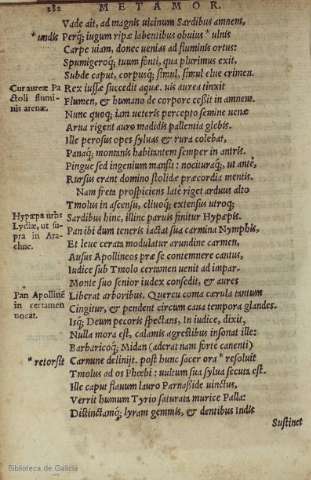 282 METAMOR.
Vade ait, ad magnis uicinum Sardibus amnem,
*undis Perq; iugum ripæ labentibus obuius *ulnis
Carpe uiam, donec uenias ad fluminis ortus:
Spumigeroq; tuum fonti, qua plurimus exit,
Subde caput, corpusq; simul, simul elue crimen.
Cur aureæ Pa Rex iussæ succedit aquæ. uis aurea tinxit
ctoli flumi Flumen, & humano de corpore cessit in amnem.
nis arenæ. Nunc quoq; iam ueteris percepto semine uenæ
Arua rigent auro madidis pallentia glebis.
Ille perosus opes syluas & rura colebat,
Panaq; montanis habitantem semper in antris.
Pingue sed ingenium mansit: nocituraq;, ut ante,
Rursus erant domino stolidæ præcordia mentis.
Nam freta prospiciens late riget arduus alto
Tmolus in ascensu, cliuoq; extensus utroq;
Hypæpa urbs Sardibus hinc, illinc paruis finitur Hypæpis.
Lydiæ, ut su Pan ibi dum teneris iactat sua carmina Nymphis,
pra in Ara Et leue cerata modulatur arundine carmen,
chne. Ausus Apollineos præ se contemnere cantus,
Iudice sub Tmolo certamen uenit ad impar.
Monte suo senior iudex consedit, & aures
Pan Apollinē Liberat arboribus. Quercu coma cærula tantum
in certamen Cingitur, & pendent circum caua tempora glandes.
uocat. Isq; Deum pecoris spectans, In iudice, dixit,
Nulla mora est. calamis agrestibus insonat ille:
Barbaricoq; Midan (aderat nam forte canenti)
*retorsit Carmine delinijt. post hunc sacer ora *resoluit
Tmolus ad os Phœbi: uultum sua sylua secuta est.
Ille caput flauum lauro Parnaside uinctus,
Verrit humum Tyrio saturata murice Palla:
Distinctamq; lyram gemmis, & dentibus Indis
Sustinet
Biblioteca de Galicia